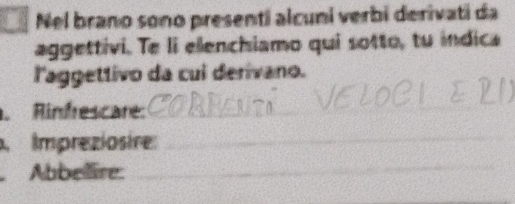 Nel brano sono presenti alcuni verbi derivati da
aggettivi. Te li elenchiamo qui sotto, tu indica
l'aggettivo da cui derivano.
Rinfrescare: CORRENTI VELOCI E
Impreziosire:
Abbellire: